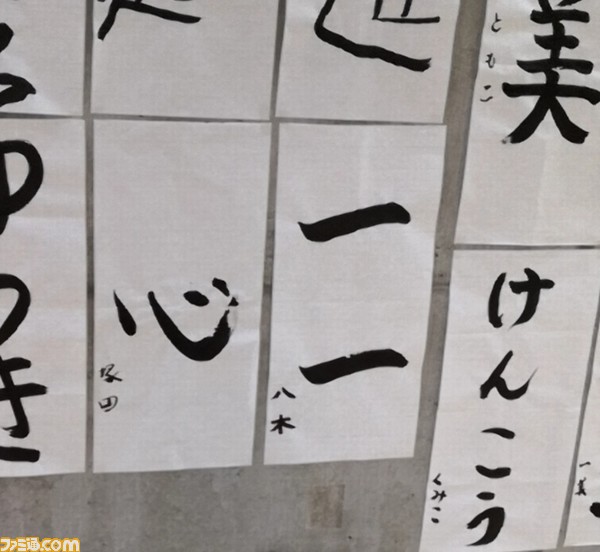 美
ともこ
けんこう
くみこ
一美
一
一
八木
心
塚田
ゆ
つき
ファミ通.com